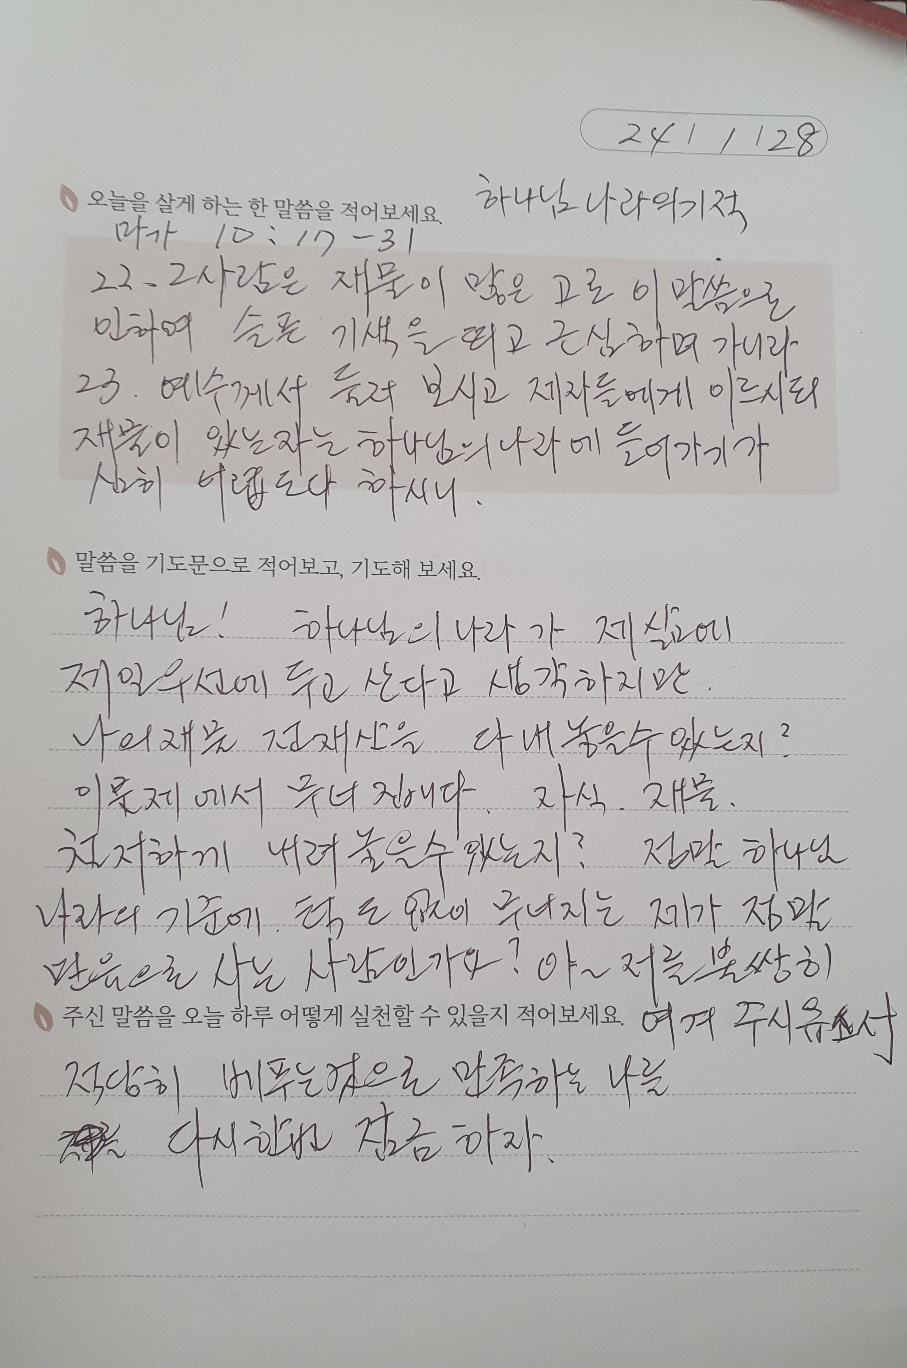 241 / 128
오늘을 살게 하는 한 말씀을 적어보세요. 하나님나라의기적
마가 10:17-31
22. 그사람은 재물이 많은 고로 이 말씀으로
인하여 슬픈 기색을 띠고 근심하며 가니라
23. 예수께서 둘러 보시고 제자들에게 이르시되
재물이 있는자는 하나님의나라에 들어가기가
심히 어렵도다 하시니.
말씀을 기도문으로 적어보고, 기도해 보세요.
하나님! 하나님의나라가 제 삶에
제일우선에 두고 산다고 생각하지만.
나의재물 전재산을 다 내놓을수있는지?
이문제에서 무너집니다. 자식. 재물.
철저하게 내려놓을수 있는지? 정말 하나님
나라의 기준에 턱도 없이 무너지는 제가 정말
믿음으로 사는 사람인가요? 아~ 저를 불쌍히
여겨 주시옵소서
주신 말씀을 오늘 하루 어떻게 실천할 수 있을지 적어보세요.
적당히 베푸는것으로 만족하는 나를
다시한번 점금하자.